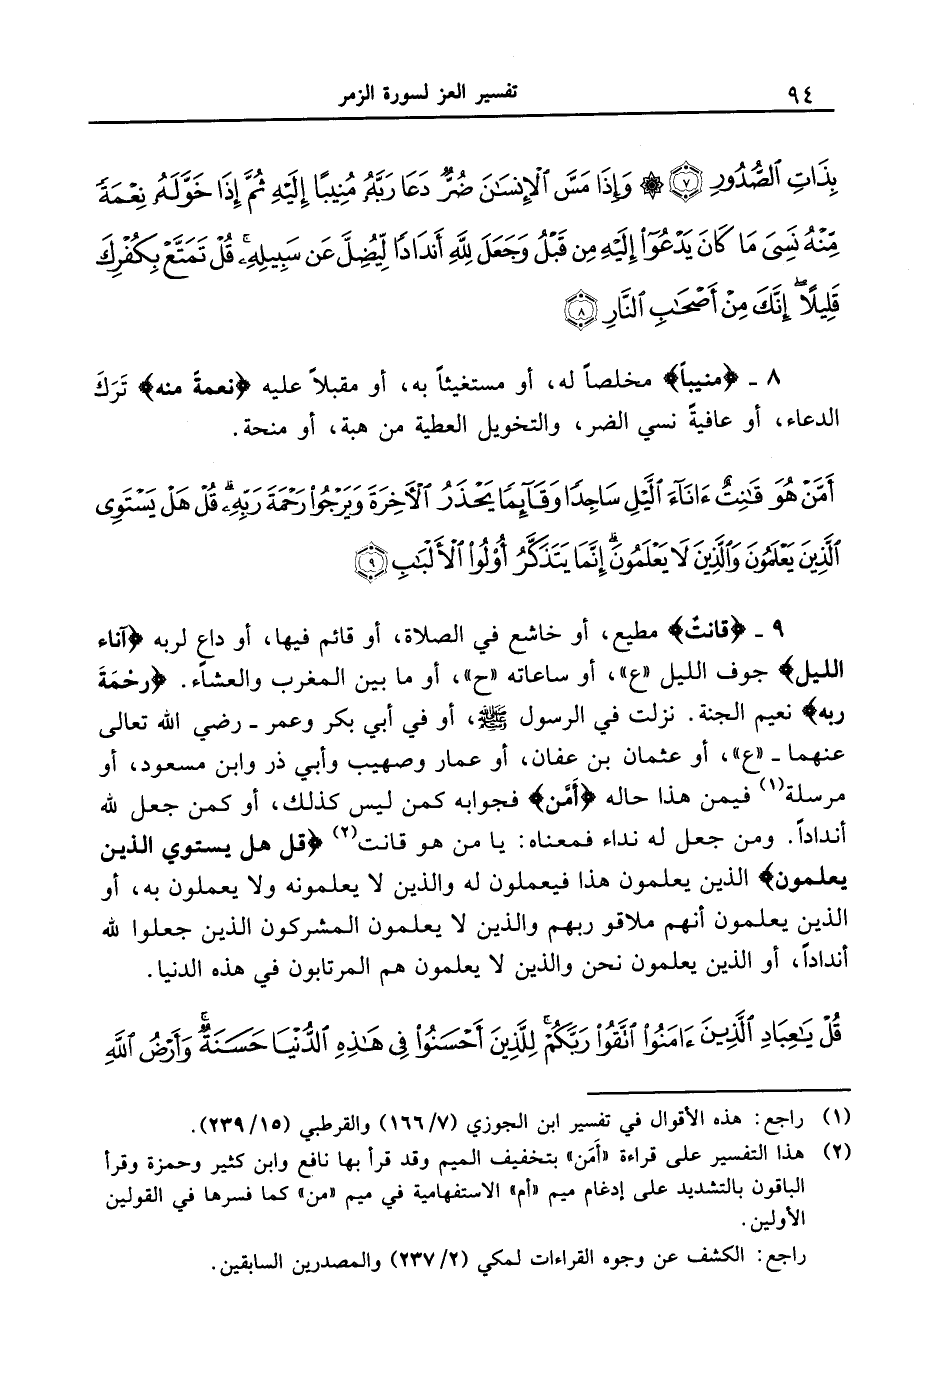 ٩٤
تفسير العز لسورة الزمر
بِذَاتِ ٱلصُّدُورِ ﴿٧﴾ ۞ وَإِذَا مَسَّ ٱلْإِنسَٰنَ ضُرٌّ دَعَا رَبَّهُۥ مُنِيبًا إِلَيْهِ ثُمَّ إِذَا خَوَّلَهُۥ نِعْمَةً
مِّنْهُ نَسِىَ مَا كَانَ يَدْعُوٓا۟ إِلَيْهِ مِن قَبْلُ وَجَعَلَ لِلَّهِ أَندَادًا لِّيُضِلَّ عَن سَبِيلِهِۦ ۚ قُلْ تَمَتَّعْ بِكُفْرِكَ
قَلِيلًا ۖ إِنَّكَ مِنْ أَصْحَٰبِ ٱلنَّارِ ﴿٨﴾
٨ ـ ﴿منيباً﴾ مخلصاً له، أو مستغيثاً به، أو مقبلاً عليه ﴿نعمةً منه﴾ تَرَكَ
الدعاء، أو عافيةً نسي الضر، والتخويل العطية من هبة، أو منحة.
أَمَّنْ هُوَ قَٰنِتٌ ءَانَآءَ ٱلَّيْلِ سَاجِدًا وَقَآئِمًا يَحْذَرُ ٱلْءَاخِرَةَ وَيَرْجُوا۟ رَحْمَةَ رَبِّهِۦ ۗ قُلْ هَلْ يَسْتَوِى
ٱلَّذِينَ يَعْلَمُونَ وَٱلَّذِينَ لَا يَعْلَمُونَ ۗ إِنَّمَا يَتَذَكَّرُ أُو۟لُوا۟ ٱلْأَلْبَٰبِ ﴿٩﴾
٩ ـ ﴿قانتٌ﴾ مطيع، أو خاشع في الصلاة، أو قائم فيها، أو داع لربه ﴿آناء
الليل﴾ جوف الليل «ع»، أو ساعاته «ح»، أو ما بين المغرب والعشاء. ﴿رحْمَةَ
ربه﴾ نعيم الجنة. نزلت في الرسول ﷺ، أو في أبي بكر وعمر ـ رضي الله تعالى
عنهما ـ «ع»، أو عثمان بن عفان، أو عمار وصهيب وأبي ذر وابن مسعود، أو
مرسلة(١) فيمن هذا حاله ﴿أَمَّن﴾ فجوابه كمن ليس كذلك، أو كمن جعل لله
أنداداً. ومن جعل له نداء فمعناه: يا من هو قانت(٢) ﴿قل هل يستوي الذين
يعلمون﴾ الذين يعلمون هذا فيعملون له والذين لا يعلمونه ولا يعملون به، أو
الذين يعلمون أنهم ملاقو ربهم والذين لا يعلمون المشركون الذين جعلوا لله
أنداداً، أو الذين يعلمون نحن والذين لا يعلمون هم المرتابون في هذه الدنيا.
قُلْ يَٰعِبَادِ ٱلَّذِينَ ءَامَنُوا۟ ٱتَّقُوا۟ رَبَّكُمْ ۚ لِلَّذِينَ أَحْسَنُوا۟ فِى هَٰذِهِ ٱلدُّنْيَا حَسَنَةٌ ۗ وَأَرْضُ ٱللَّهِ
(١) راجع: هذه الأقوال في تفسير ابن الجوزي (١٦٦/٧) والقرطبي (٢٣٩/١٥).
(٢) هذا التفسير على قراءة «أَمَن» بتخفيف الميم وقد قرأ بها نافع وابن كثير وحمزة وقرأ
الباقون بالتشديد على إدغام ميم «أم» الاستفهامية في ميم «من» كما فسرها في القولين
الأولين.
راجع: الكشف عن وجوه القراءات لمكي (٢٣٧/٢) والمصدرين السابقين.